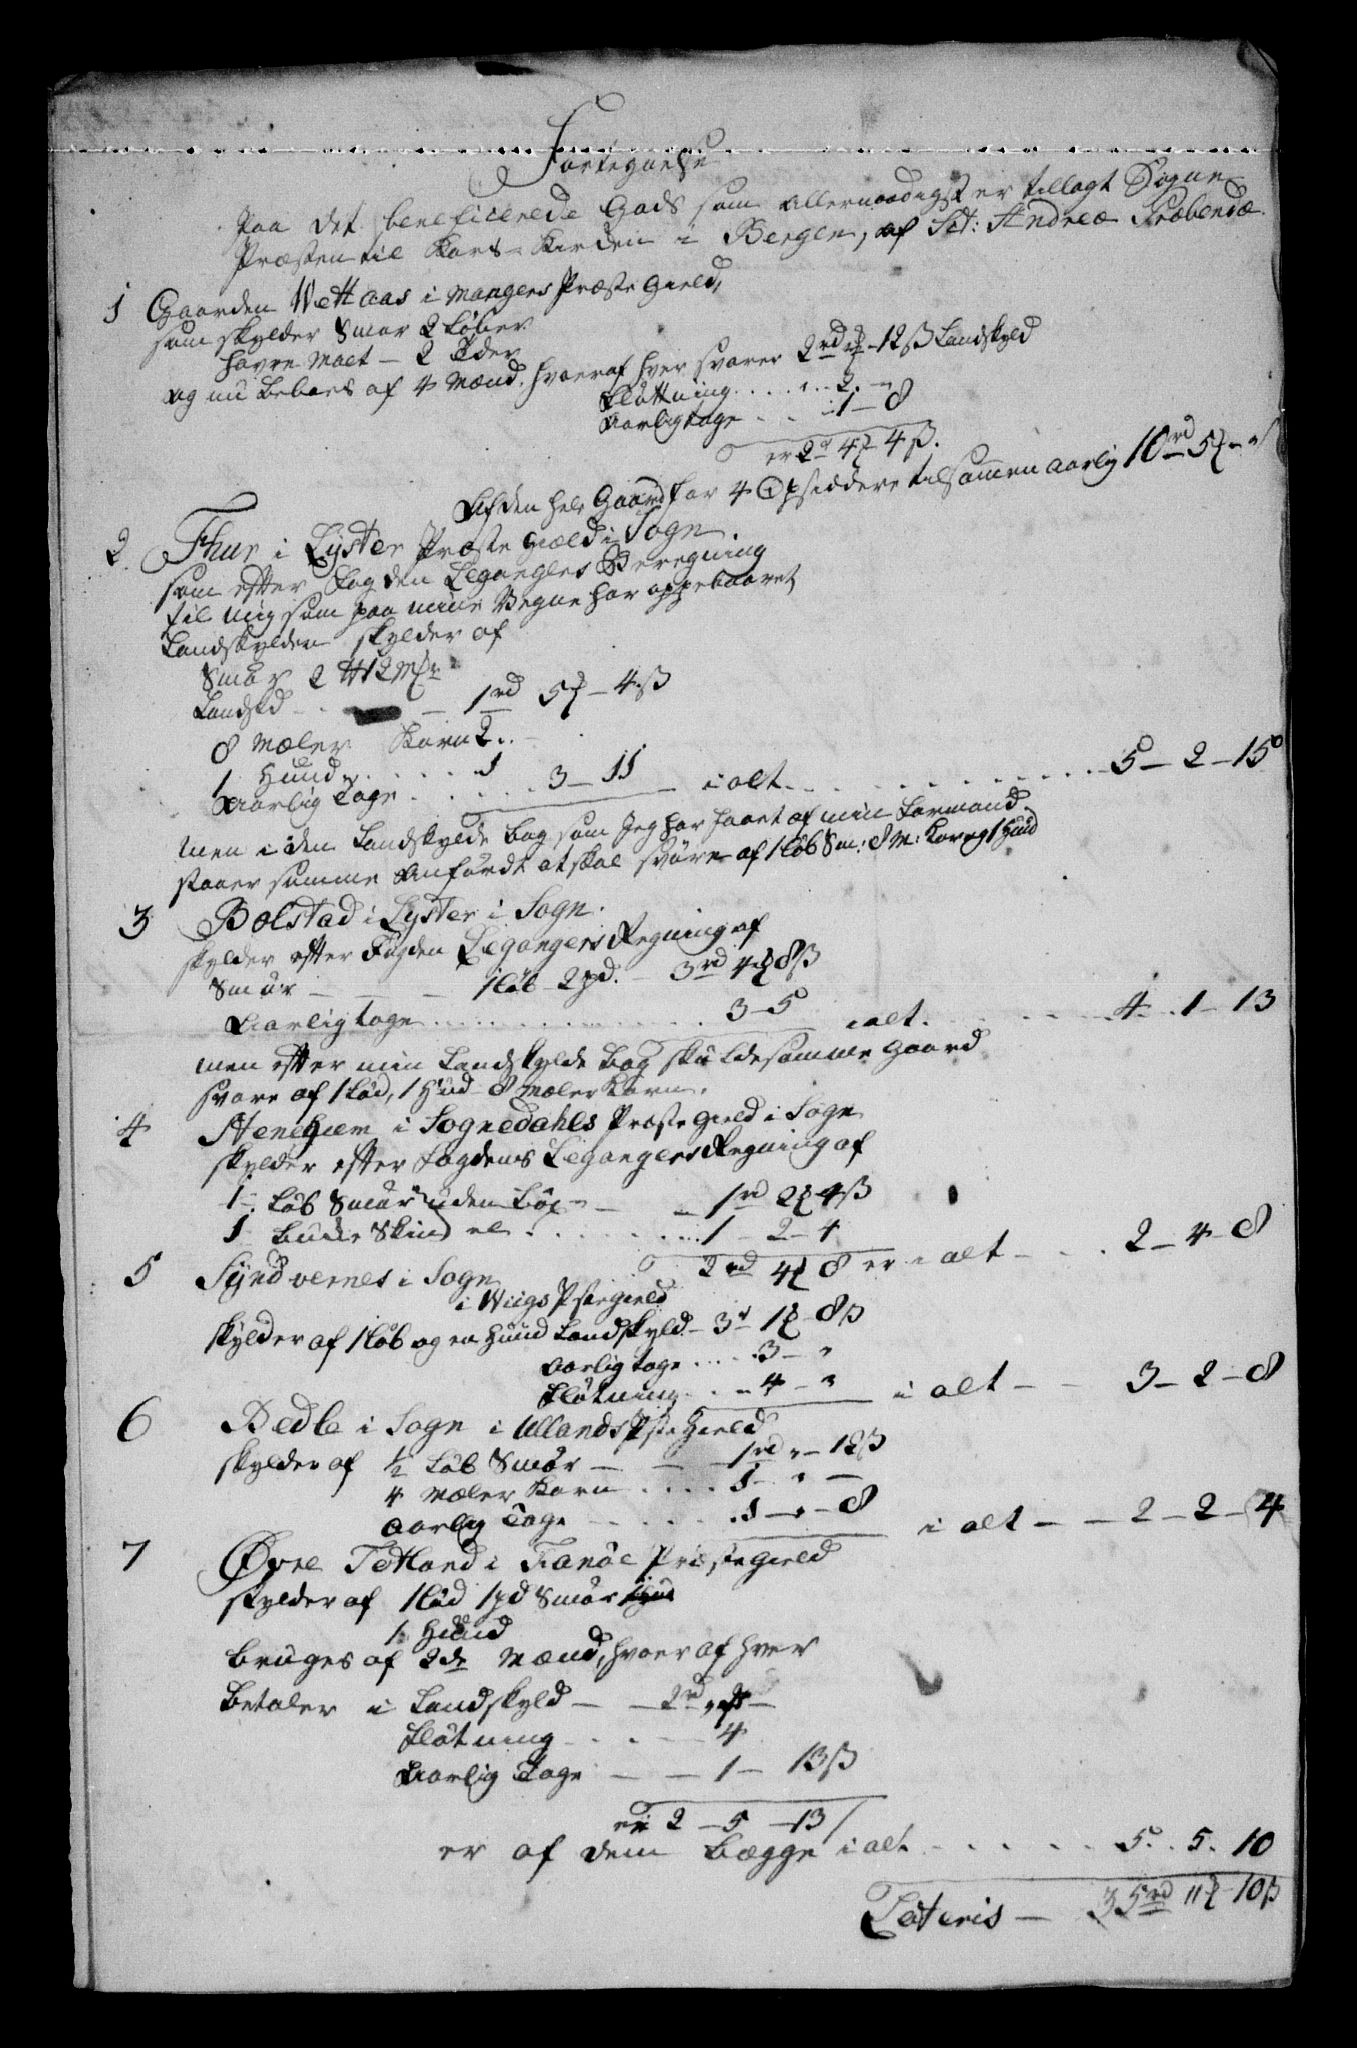 Fortegnelse
paa det beneficerede Gods som allernaadigst er tillagt Sogne
Præsten til Kors-Kirken i Bergen, af Sct: Andreæ Præbendæ.
1 Gaarden Wettaas i Mangers Præste Gield,
som skylder Smør 2 Løber
havre Malt - 2
og nu Beboes af 4 Mænd, hvoraf hver svarer 2 rd - 12 ß Landskyld
Fløttning .... 2. -
Aarligtage .. 1 - 8
er 2 4 4 ß.
Af den hele Gaard for 4 Opsiddere tilsammen aarlig 10 rd 5
2. Fhur i Lyster Præste Gield i Sogn
som efter Fogden Legangers Beregning
til mig som paa mine Vegne har oppebaaret
Landskylden skylder af
Smør 2 12
Landskd - 1 rd 5 - 4 ß
8 Mæler Korn 2 . -
1 Huud .... 1
Aarlig Tage .... 3 - 11 i alt .... 5 - 2 - 15
Men i den Landskylds Bog som Jeg har faaet af min Formand
staaer samme anført at skal svare af 1 Løb Sm: 8 M: Korn og 1 Huud
3 Bolstad i Lyster i Sogn.
skylder efter Fogden Legangers Regning af
Smør - - - 1 Løb - 2 pd. - 3 rd 4 8 ß
Aarligtage .... 3 - 5 i alt .... 4 . 1 - 13
men efter min Landskylds Bog skulde samme Gaard
svare af 1 Løb, 1 Hud 8 Mæler Korn.
4 Steenhiem i Sognedahls Præste Gield i Sogn
skylder efter Fogdens Legangers Regning af
1. Løb Smør uden - - 1 rd 2 4 ß
1 Bukke Skind .... 1 - 2 - 4
2 rd 4 8 er i alt - . . 2 - 4 - 8
5 Syndvernes i Sogn
i Wiigs Pstegield
skylder af 1 Løb og en Huud Landskyld - 3 1 - 8 ß
Aarlig tage .... 3 - "
Fløtning. .. - 4 - " i alt - - 3 - 2 - 8
6 Bedle i Sogn i Ullands Pste Gield
skylder af ½ Løb Smør - - - 1 rd " - 12 ß
4 Mæler Korn .... 1 - " -
Aarlig Tage .... 1 - " - 8 i alt - - 2 - 2 - 4
7 Øvre Tetland i Fanøe Præstegield
skylder af 1 Løb 1 pd Smør
1 Huud
Bruges af 2de Mænd, hvoraf hver
Betaler i Landskyld - - 2 rd
Fløtning . . - 4
Aarlig Tage - - 1 - 13 ß
er 2 - 5 - 13
er af dem Begge i alt ..... 5 . 5 . 10
Lateris - 35 rd 11 10 ß